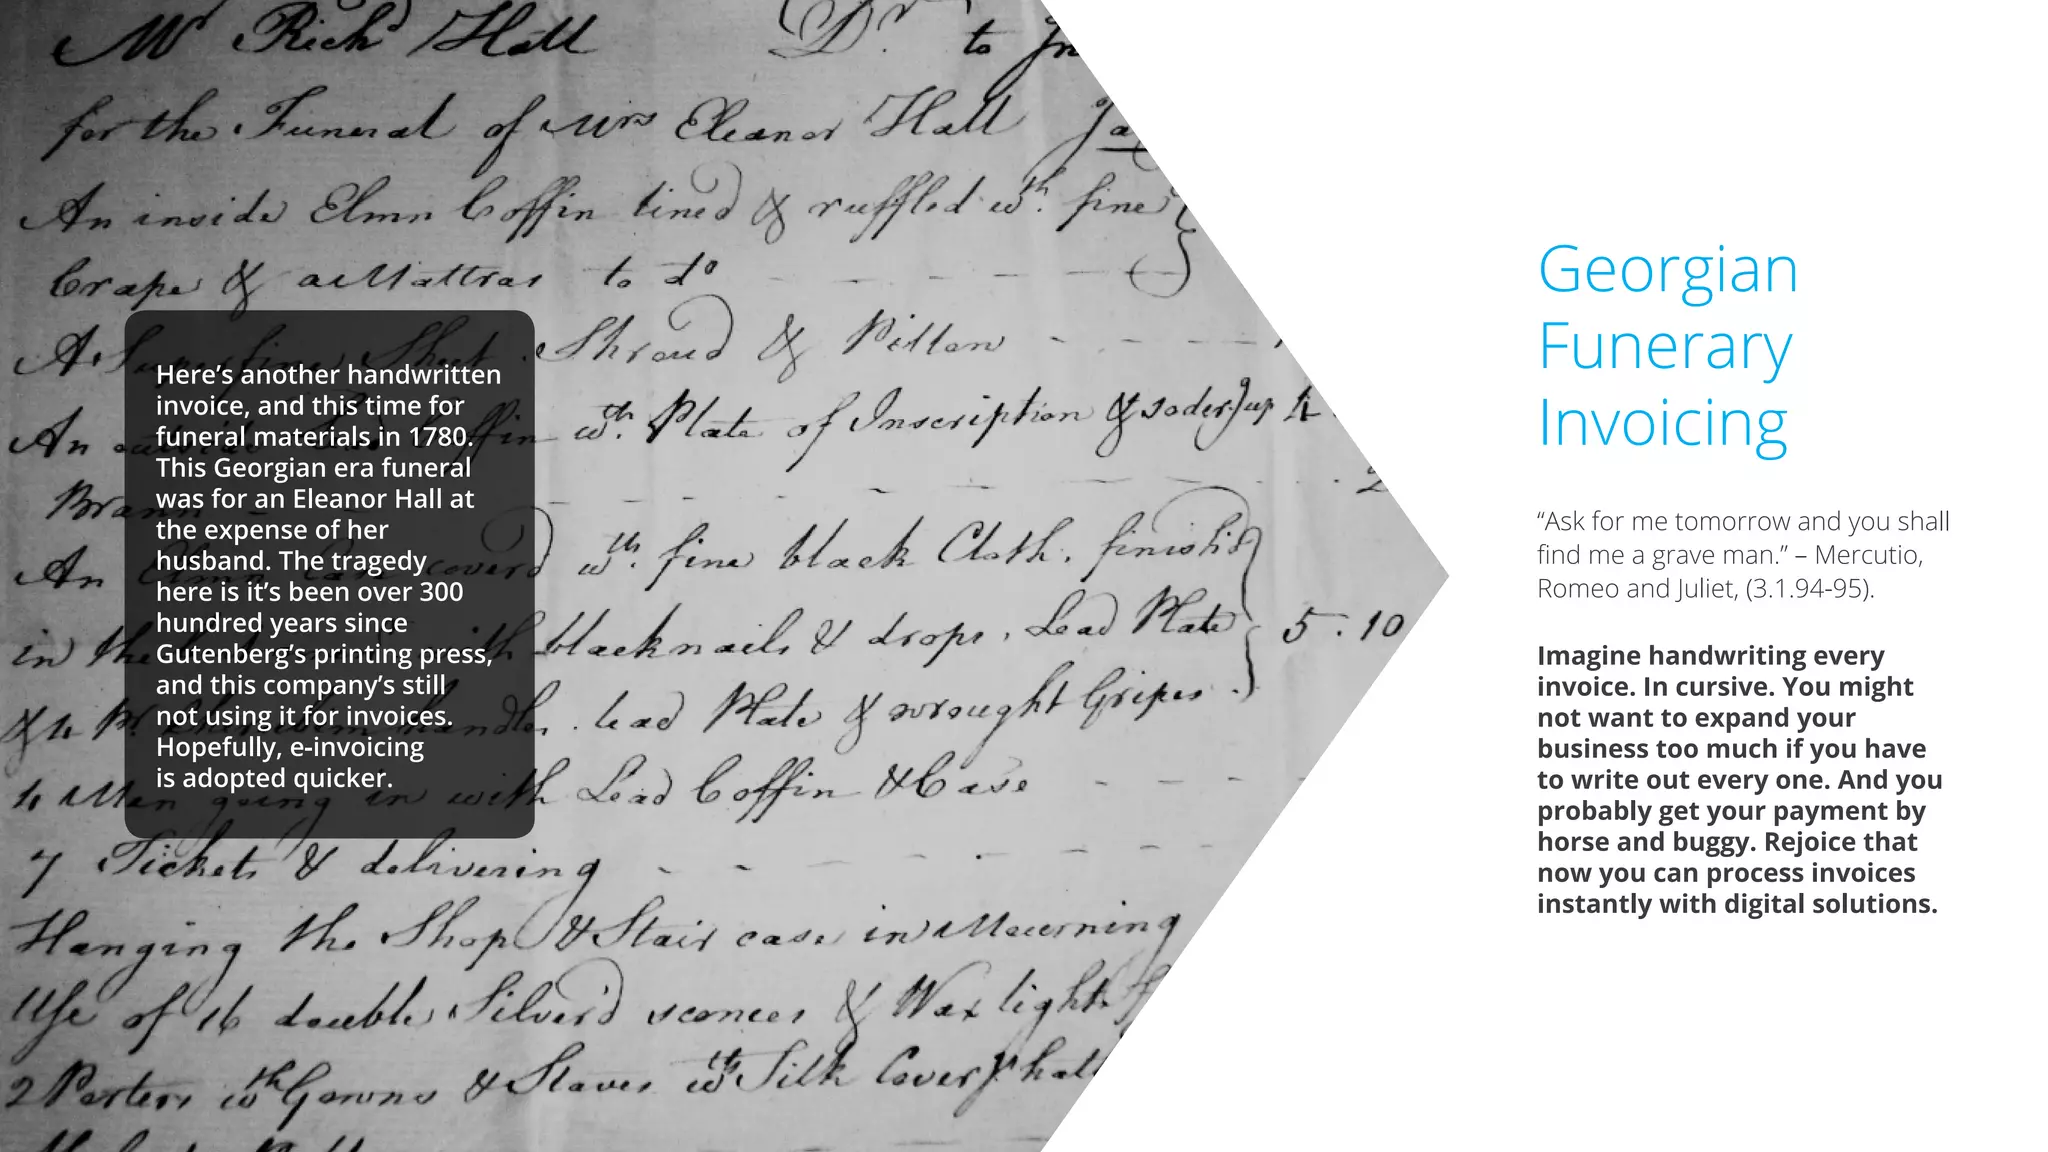 Mr Richd Hall Dr. to Jn
for the Funeral of Mrs Eleanor Hall Ja
An inside Elmn Coffin lined & ruffled wth. fine
Crape & a Mattrass to do
A Superfine Sheet. Shroud & Pillow
An outside Lead Coffin wth. Plate of Inscription & soderg up 4
An Elmn Case coverd wth. fine black Cloth, finish'd
in the with black nails & drops, Lead Plate 5.10
handles. lead Plate & wrought Gripes.
4 Men going in with Lead Coffin & Case
7 Tickets & delivering
Hanging the Shop & Stair case in Mourning
Use of 16 double Silver'd sconces & Wax lights f
2 Porters wth Gowns & Staves wth Silk Covers hatt
Here's another handwritten
invoice, and this time for
funeral materials in 1780.
This Georgian era funeral
was for an Eleanor Hall at
the expense of her
husband. The tragedy
here is it's been over 300
hundred years since
Gutenberg's printing press,
and this company's still
not using it for invoices.
Hopefully, e-invoicing
is adopted quicker.
Georgian
Funerary
Invoicing
“Ask for me tomorrow and you shall
find me a grave man.” – Mercutio,
Romeo and Juliet, (3.1.94-95).
Imagine handwriting every
invoice. In cursive. You might
not want to expand your
business too much if you have
to write out every one. And you
probably get your payment by
horse and buggy. Rejoice that
now you can process invoices
instantly with digital solutions.